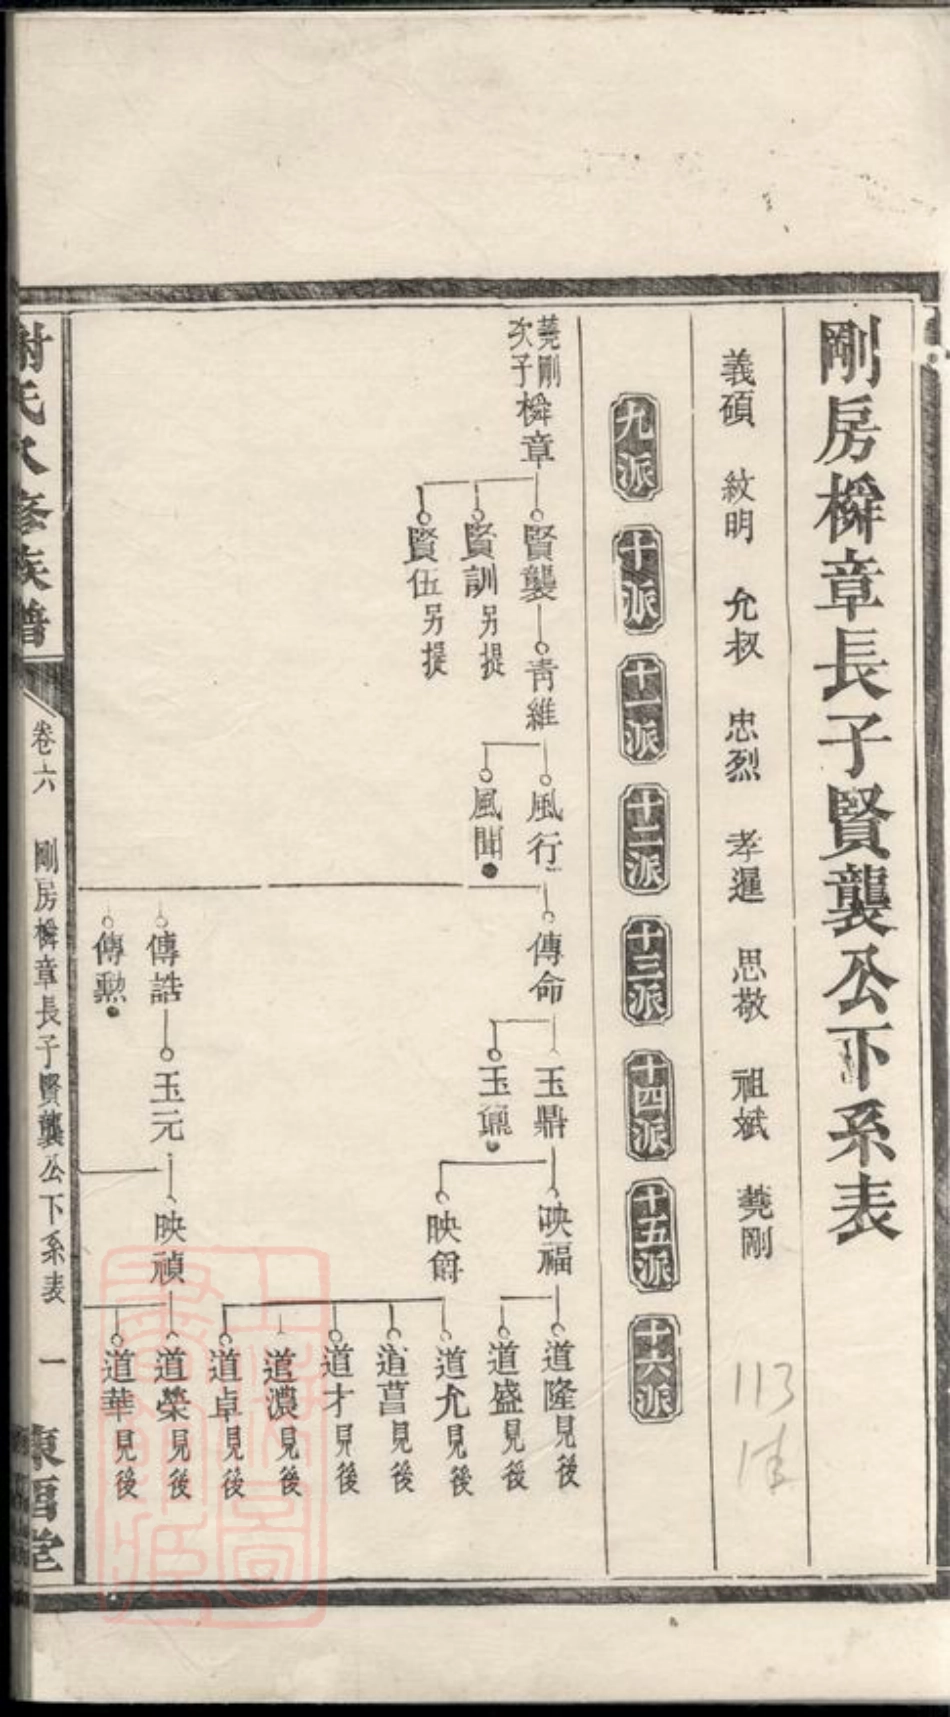 剛房橓章長子賢襲公下系表
義碩 紋明 允叔 忠烈 孝暹 思敬 祖斌 蕘剛
九派 十派 十一派 十二派 十三派 十四派 十五派 十六派
蕘剛次子 橓章
賢襲
賢訓 另提
賢伍 另提
青維
風行
風聞
傳命
傳誥
傳勲
玉鼎
玉鼐
玉元
映福
映爵
映禎
道隆 見後
道盛 見後
道允 見後
道菖 見後
道才 見後
道濃 見後
道卓 見後
道榮 見後
道華 見後
113
謝氏 修族譜
卷六 剛房橓章長子賢襲公下系表 一